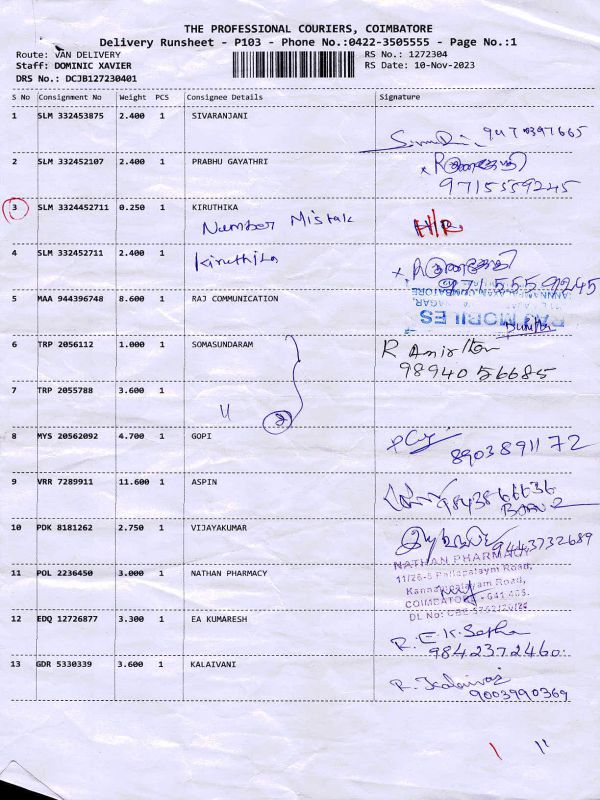 THE PROFESSIONAL COURIERS, COIMBATORE
Delivery Runsheet - P103 - Phone No.:0422-3505555 - Page No.:1
Route: VAN DELIVERY
RS No.: 1272304
Staff: DOMINIC XAVIER
RS Date: 10-Nov-2023
DRS No.: DCJB127230401
S No Consignment No Weight PCS Consignee Details Signature
1 SLM 332453875 2.400 1 SIVARANJANI
2 SLM 332452107 2.400 1 PRABHU GAYATHRI
9715559245
3 SLM 3324452711 0.250 1 KIRUTHIKA
Number Mistak H/R
4 SLM 332452711 2.400 1
Kiruthika
9715559245
5 MAA 944396748 8.600 1 RAJ COMMUNICATION
RAJ MOBILES
6 TRP 2056112 1.000 1 SOMASUNDARAM
9894056685
7 TRP 2055788 3.600 1
2
8 MYS 20562092 4.700 1 GOPI
8903891172
9 VRR 7289911 11.600 1 ASPIN
10 PDK 8181262 2.750 1 VIJAYAKUMAR
9443732689
11 POL 2236450 3.000 1 NATHAN PHARMACY
NATHAN PHARMACY
12 EDQ 12726877 3.300 1 EA KUMARESH
9842372460
13 GDR 5330339 3.600 1 KALAIVANI
9003990369